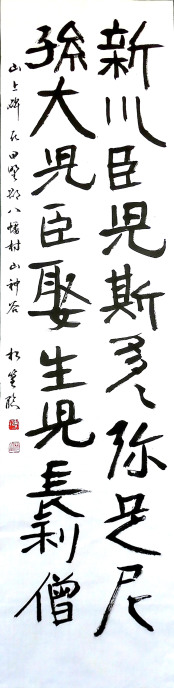 新川臣児斯多々弥足尼
孫大児臣娶生児長利僧
山上碑在田野郡八幡村山神谷